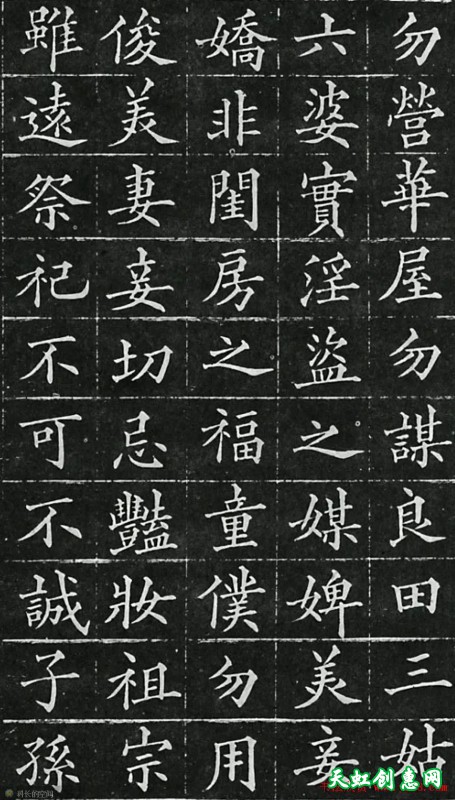 勿營華屋勿謀良田三姑
六婆實淫盜之媒婢美妾
嬌非閨房之福童僕勿用
俊美妻妾切忌豔妝祖宗
雖遠祭祀不可不誠子孫
天虹创意网